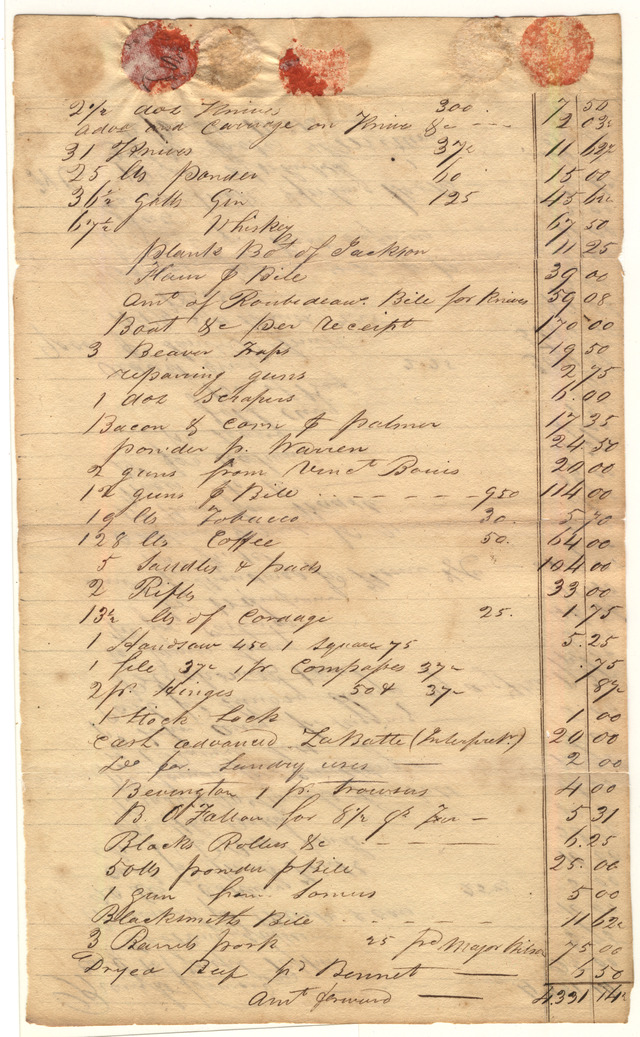 2 1/2 doz Knives 300. 7 50
advce and Carriage on Knives &c - - - 2 03 1/2
31 Knives 37 1/2 11 62 1/2
25 lbs Powder 60 15 00
36 1/2 galls Gin 125 45 62 1/2
67 1/2 Whiskey 67 50
plank Bot of Jackson 11 25
Flour p Bile 39 00
Amt of Roubedeaus Bile for Knives 59 08
Boat &c per receipt 170 00
3 Beaver Traps 19 50
repairing guns 2 75
1 doz Scrapers 6.00
Bacon & Corn p palmer 17 35
powder pr. Warren 24 50
2 guns from Vinct Bouis 20 00
12 guns p Bile - - - - 950 114 00
19 lbs Tobacco 30. 5 70
128 lbs Coffee 50. 64 00
5 Saddles & pads 104 00
2 Rifles 33 00
13 1/2 lbs of Cordage 25. 1.75
1 Handsaw 450 1 Square 75 5.25
1 file 37 1/2 1 pr Compasses 37 1/2 .75
2 pr. Hinges 50 & 37 1/2 87 1/2
1 Stock Lock 1 00
Cash advanced LaBatte (Interpretr.) 20 00
Do for Sundry uses — 2 00
Bevington 1 pr. trowsers 4 00
B. O'Fallon for 8 1/2 - 5 31
Blacks Rollers &c - - - - 6.25
50 lbs powder p Bile 25.00
1 gun from Somers 5 00
Blacksmiths Bile - - - - 11 62 1/2
3 Barrels pork 25 pd Major Wilson 75 00
Dryed Beef pd Bennet — 6 50
Amt forward — 4331 14 1/2